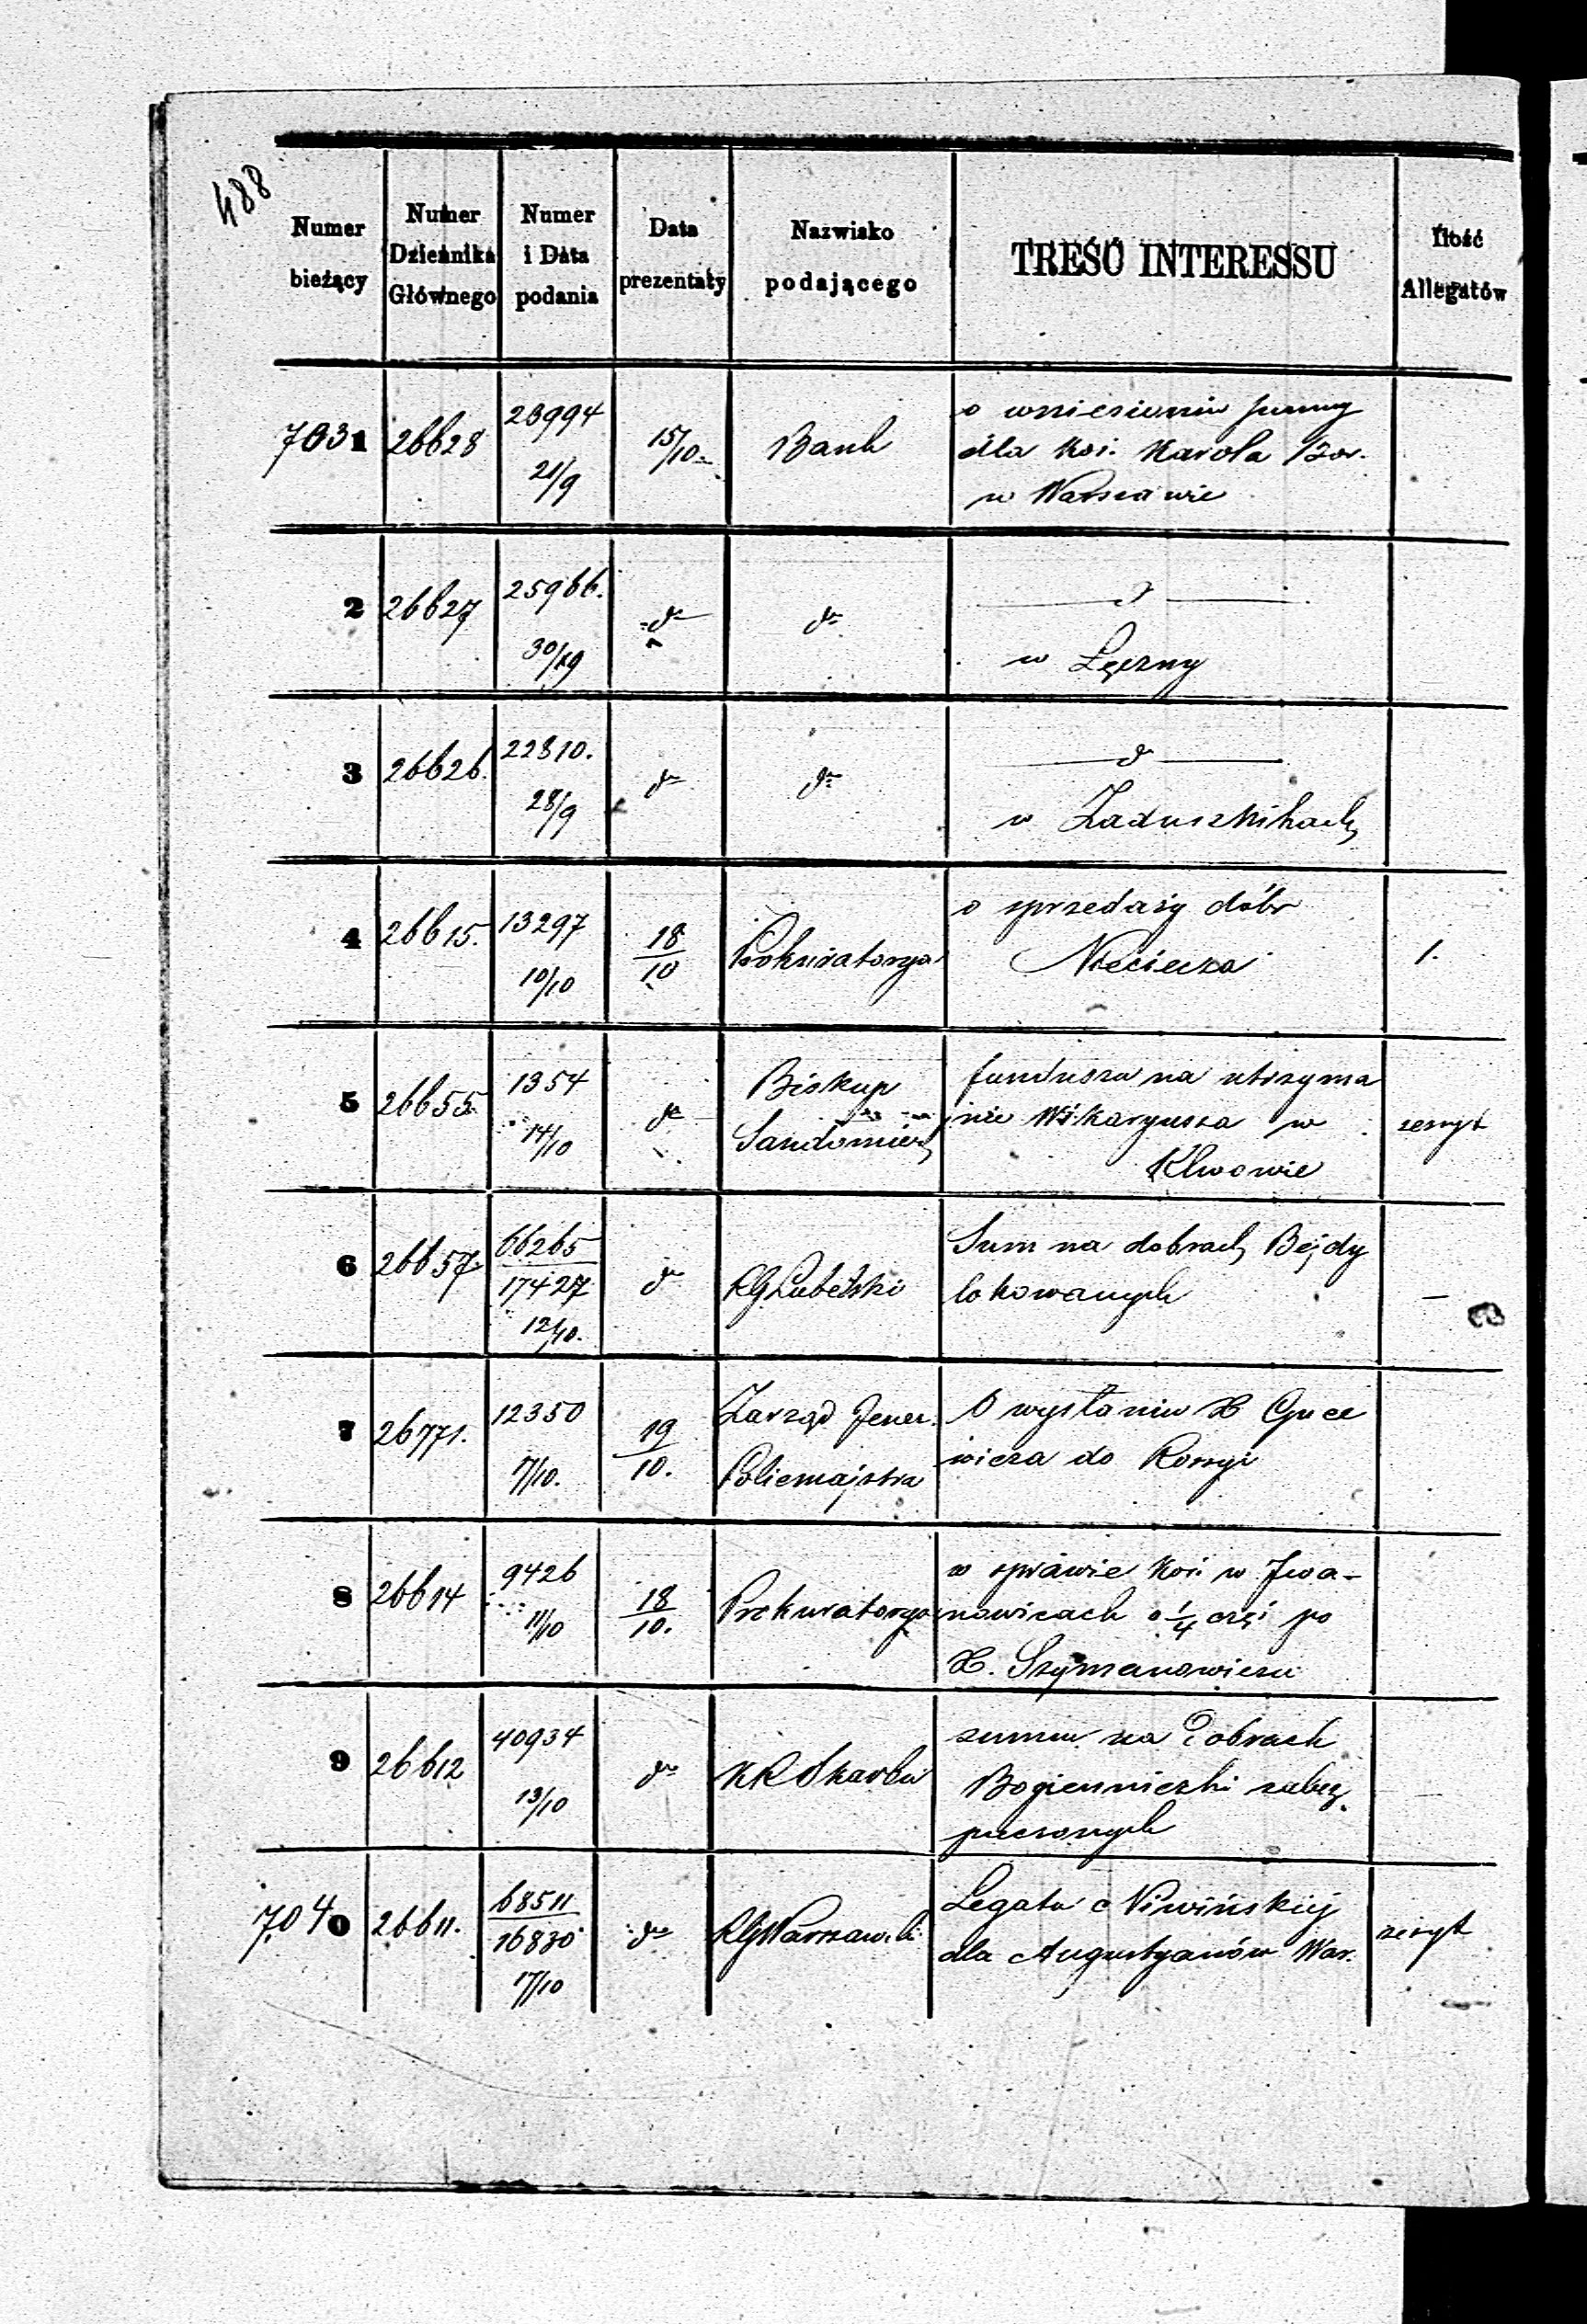 488
Numer bieżący
Numer Dziennika Głównego
Numer i Data podania
Data prezentaty
Nazwisko podającego
TREŚĆ INTERESSU
Ilość Allegatów
7031 26628 28994 21/9 15/10 Bank o wniesieniu summy
dla Koś. Karola Bor.
w Warszawie
2 26627 25966. 30/9 do do do
w Łęczny
3 26626. 22810. 28/9 do do do
w Zaduszkikach
4 26615. 13297 10/10 18/10 Prokuratorya o sprzedaży dóbr
Nieciecza 1.
5 26655 1354 14/10 do Biskup funduszu na utrzyma
Sandomier nie Wikaryusza w zeszyt
Klwowie
6 26657 66265/17427 12/10. do RGLubelski Sum na dobrach Bejdy
lokowanych —
7 26771. 12350 7/10. 19/10. Zarząd Jener. O wysłaniu X Guce
Policmajstra wicza do Rossyi
8 26614 9426 11/10 18/10. Prokuratorya w sprawie Koś. w Iwa-
nowicach o 1/4 częś po
X. Szymanowiczu
9 26612 40934 13/10 do KRSkarbu summ na Dobrach
Bogienniczki zabez
pieczonych
7040 26611. 68511/16830 17/10 do RGWarszawski Legatu Niwińskiej
dla Augustyanów War. zeszyt